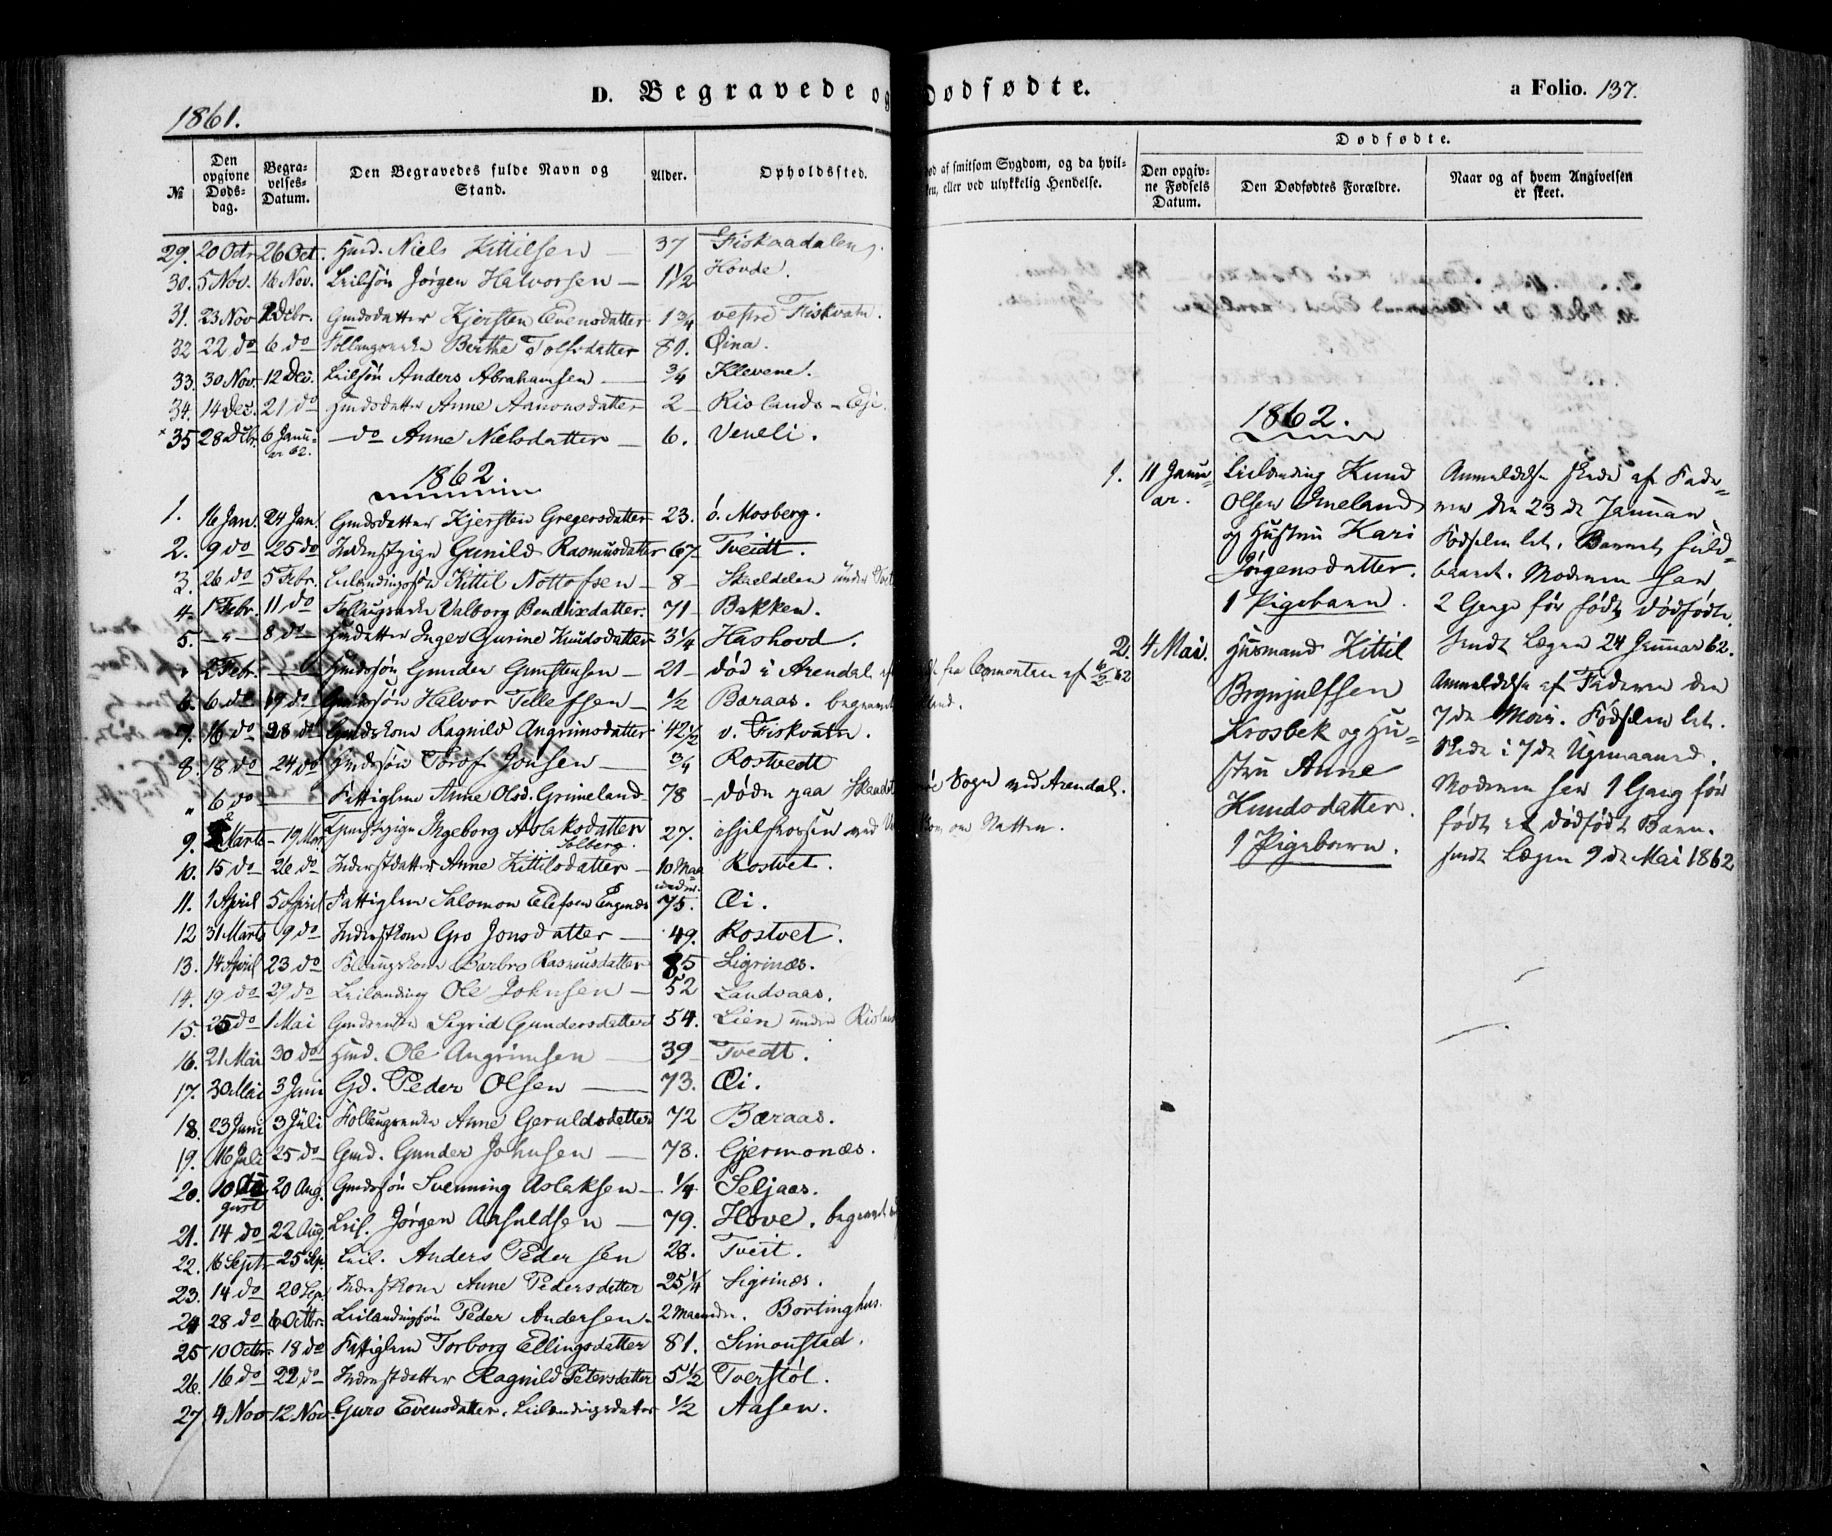 D. Begravede og Dødfødte.
a Folio. 137.
1861.
No
Den opgivne Døds-dag.
Begra-velses-Datum.
Den Begravedes fulde Navn og Stand.
Alder.
Opholdssted.
død af smitsom Sygdom, og da hvil-
en, eller ved ulykkelig Hendelse.
Dødfødte.
Den opgiv-ne Fødsels Datum.
Den Dødfødtes Forældre.
Naar og af hvem Angivelsen er skeet.
29. 20 Octr 26 Oct. Hmd. Niels Kittilsen — 37 Fiskaadalen.
30. 5 Nov. 16 Nov. Leilsøn Jørgen Halvorsen — 1 1/2 Hovde.
31. 23 Nov Decbr. Gmdsdatter Kjersten Evensdatter 1 3/4 vestre Fiskvatn.
32 22 do 6 do Follaugsenke Berthe Tolfsdatter 81. Øina.
33. 30 Nov. 12 Dec. Leilsøn Anders Abrahamsen — 3/4 Klevene.
34. 14 Dec. 21 do Hmdsdatter Anne Aanonsdatter 2 — Rislands-Eje.
× 35 28 Decbr. 6 Janu-ar 62. — do Anne Nielsdatter — 6. Veneli.
1862
1. 16 Jan. 24 Jan. Gmdsdatter Kjersten Gregersdatter 23. ö. Mosberg.
2. 9 do 25 do Inderstpige Gunild Rasmusdatter 67. Tveidt.
3. 26 do 5 Febr. Leilændingssøn Kittil Nottolfsen — 8 — Skjeldelen under
4. 1 Febr. 11 do Follaugsenke Valborg Bendixdatter. 71 — Bakken.
5. — " — 8 do — Hmdatter Inger Gurine Knudsdatter 3 1/4 Hashovd.
" 2 Febr. — Gmdssøn Gunder Gunstensen — 21 — død i Arendal fra Comonten af 6/2 62
6. 6 do 19 do Gmdssøn Halvor Tellefsen — 1/2 Baraas. begravet
7. 16 do 28 do Gmdskone Ragnild Angrimsdatter 42 1/2 v. Fiskvatn.
8. 18 do 24 do Hmdssøn Torof Jonsen — 3/4 Rostvedt
" 6 do — Fattiglem Anne Olsd. Grimeland — 78 — døde paa Sogn ved Arendal.
9. 2 Marts — 19 Mar. Tjenestepige Ingeborg Aslaksdatter Solberg. 27. ihjelfrossen ved om Natten.
10. 15 do 26 do Inderstdatter Anne Kittilsdatter — 10 Maaneder. Rostvet.
11. 1 April 5 April Fattiglem Salomon Olefsen Engenæs 75. Øi.
12 31 Marts 9 do Inderstkone Gro Jonsdatter — 49. Rostvet.
13. 14 April 23 do Follaugskone Barbro Rasmusdatter 85 Sigrinæs.
14. 19 do 29 do Leilænding Ole Johnsen — 52 Landsaas.
15. 25 do 1 Mai Gmdsenke Sigrid Gundersdatter 54. Lien under
16. 21 Mai 30 do Hmd. Ole Angrimsen — 39 — Tvedt.
17. 30 Mai 3 Juni Gd. Peder Olsen — 73. Øi.
18. 23 Juni 3 Juli Follaugsenke Anne Geruldsdatter 72 Bæraas.
19. 16 Juli 25 do Gmd. Gunder Johnsen — 73. Gjermonæs.
20. 10 August 20 Aug. Gmdssøn Svenning Aslaksen — 1/4 Seljaas.
21. 14 do 22 Aug. Leil. Jørgen Aasuldsen — 79. Hove. begravet
22. 16 Sept. 25 Sep. Leil. Anders Pedersen 28. Tveit.
23. 14 do 20 Sep. Inderstkone Anne Pedersdatter 25 1/4 Sigrinæs.
24 28 do 6 Octbr. Leilændingsøn Peder Andersen — 2 Maaneder. Bortinghus.
25 10 Octbr. 18 do Fattiglem Torborg Ellingsdatter 81. Simonstad.
26. 16 do 22 do Inderstdatter Ragnild Petersdatter 5 1/2 Tverstøl.
27 4 Nov 12 Nov. Guro Evensdatter. Leilændingsdatter 1/2 Aasen.
1862.
1. 11 Janu-ar.
Leilænding Knud
Olsen Emeland
og Hustru Kari
Jørgensdatter.
1 Pigebarn.
Anmeldelse skede af Fade-
ren den 23 de Januar
Fødselen let. Barnet fuld-
baaret. Moderen har
2 Gange før født dødfødte.
sendt Lægen 24 Januar 62.
2. 4 Mai.
Husmand Kittil
Brynjulfsen
Krosbek og Hu-
stru Anne
Knudsdatter.
1 Pigebarn.
Anmeldelse af Faderen den
7 de Mai. Fødselen let.
skede i 7 de Ugemaaned.
Moderen har 1 Gang før
født et dødfødt Barn.
sendt Lægen 9 de Mai 1862